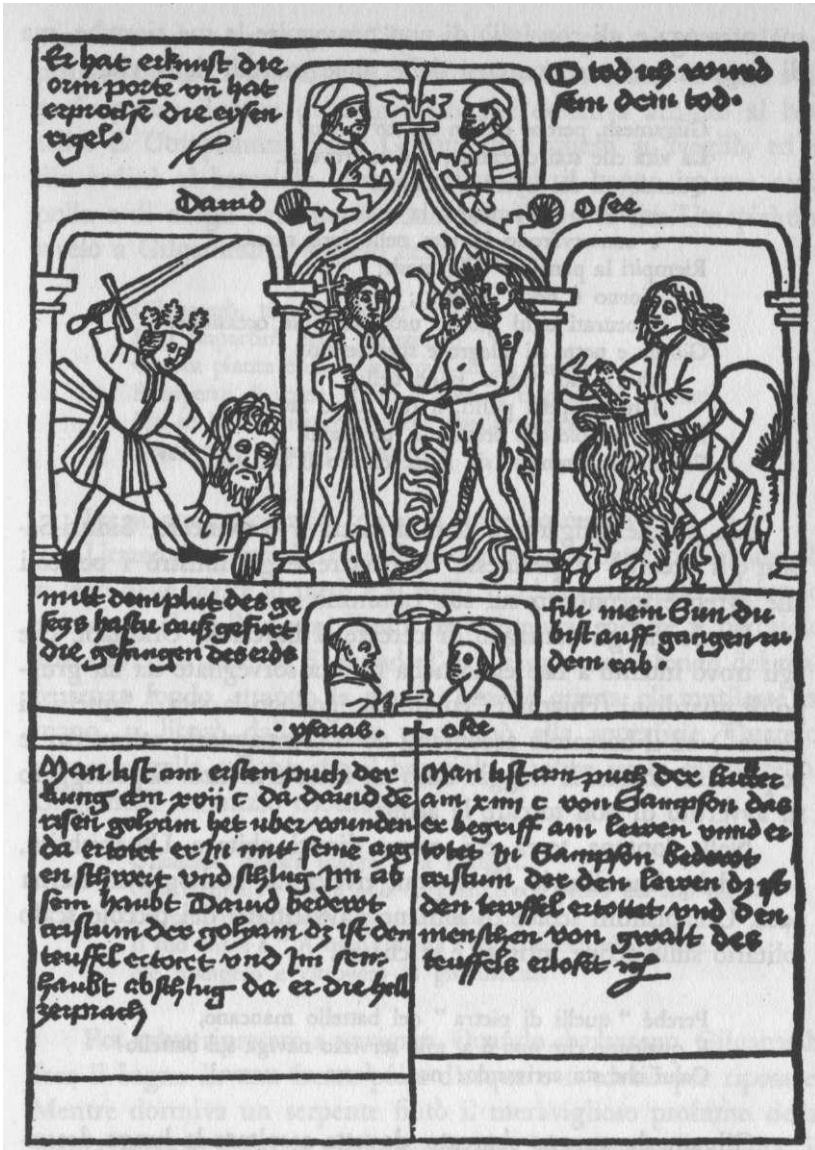 Er hat erknist die
orin porte vn hat
erprochē die eysen
rigel
O tod ich wurd
sein dein tod
Dauid
Osee
mitt dem plut des ge
secz hastu auß gefirt
die gefangen des
fili mein Sun du
bist auff gangen zu
dem rab
ysaias
osee
Man list am ersten puch der
kung am xvij c da dauid dē
risen golyam het uber wunden
da ertotet er in mitt seinē
en schwert vnd schlug im ab
sein haubt Dauid bedewt
cristum der golyam dz ist den
teuffel ertotet vnd im sein
haubt abschlug da er die hell
zerprach
Man list am puch der
am xiiii c von Sampson das
er begriff ain lewen vnnd er
totet in Sampson bedewt
cristum der den lewen dz ist
den teuffel ertottet vnd den
menschen von gewalt des
teuffels erloset